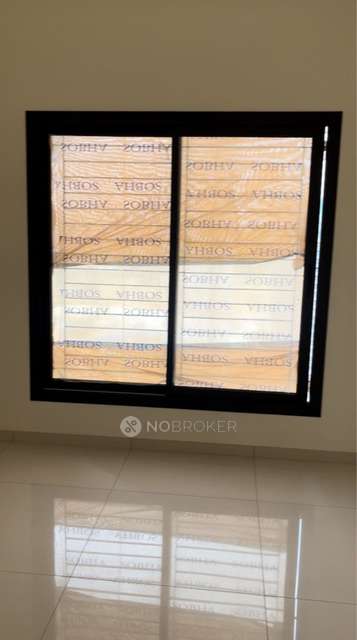 SOBHA SOBHA
SOBHA SOBHA
SOBHA SOBHA
SOBHA SOBHA
SOBHA SOBHA
SOBHA SOBHA
SOBHA SOBHA
SOBHA SOBHA
SOBHA SOBHA
SOBHA SOBHA
SOBHA SOBHA
SOBHA SOBHA
SOBHA SOBHA
SOBHA SOBHA
SOBHA SOBHA
SOBHA SOBHA
SOBHA SOBHA
SOBHA SOBHA
NOBROKER